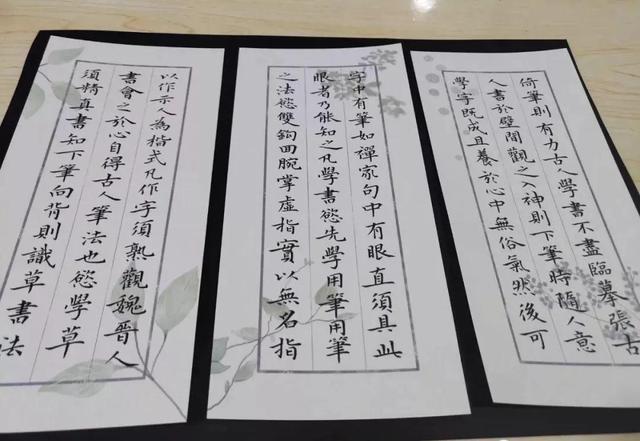 字中有筆如禪家句中有眼直須具此
眼者乃能知之凡學書慾先學用筆用筆
之法慾雙鉤回腕掌虛指實以無名指
倚筆則有力古人學書不盡臨摹張古
人書於壁間觀之入神則下筆時隨人意
學字既成且養於心中無俗氣然後可
以作示人為楷式凡作字須熟觀魏晉人
書會之於心自得古人筆法也慾學草
須精真書知下筆向背則識草書法